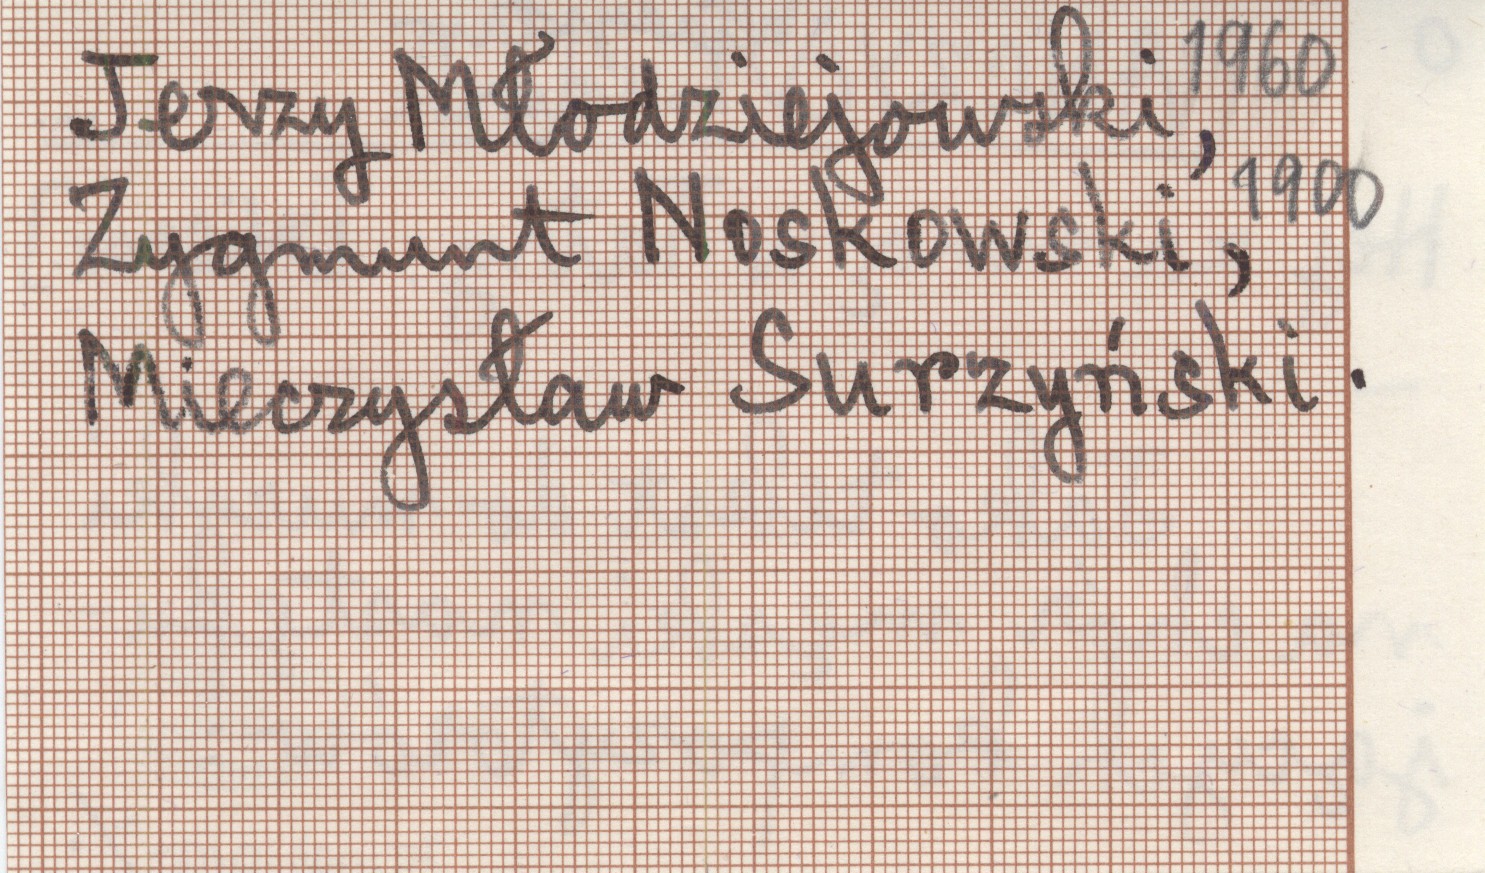 Jerzy Młodziejowski, 1960
Zygmunt Noskowski, 1900
Mieczysław Surzyński.